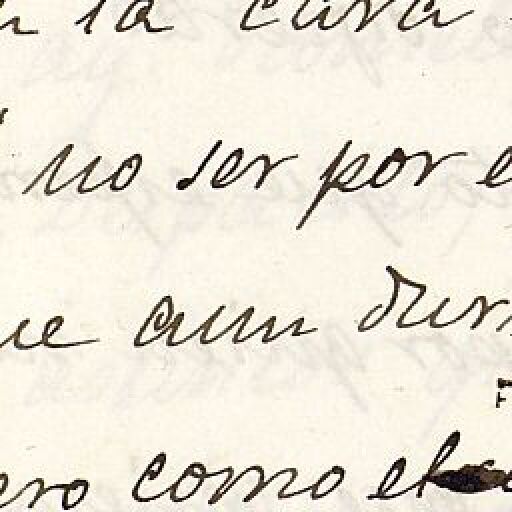 la cara
no ser por
ue aun dur
ero como el